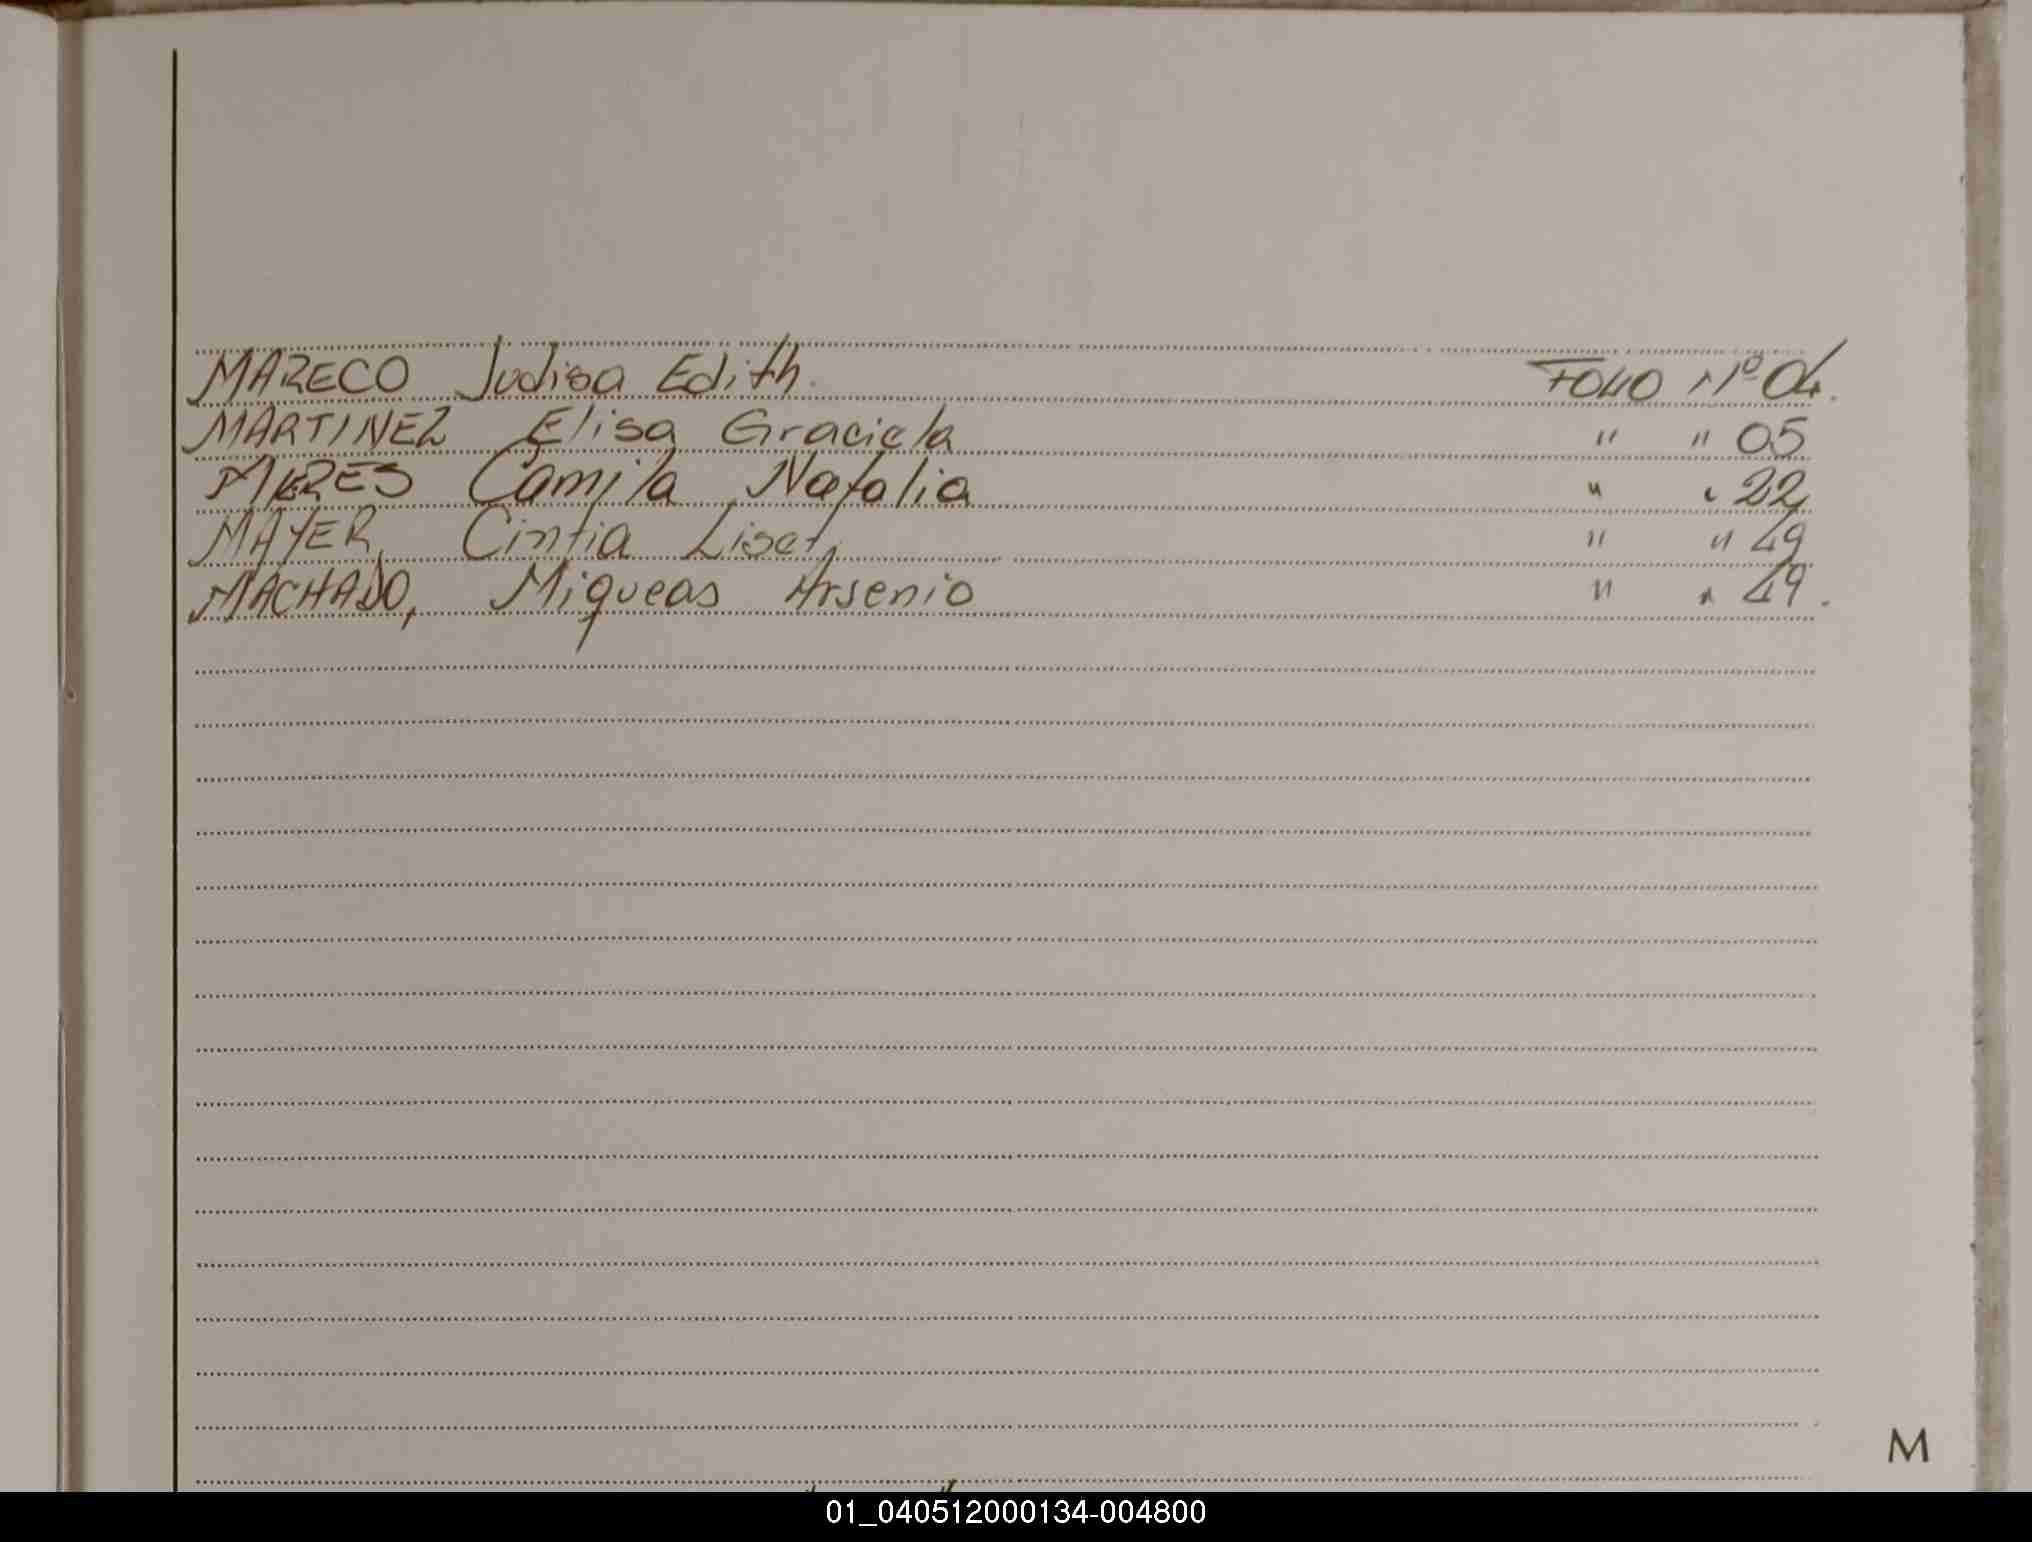 MARECO Judisa Edith. FOLIO Nº 04.
MARTINEZ Elisa Graciela " " 05
MIERES Camila Natalia " " 22
MAYER, Cintia Liset, " " 49
MACHADO, Miqueas Arsenio " " 49.
M
01_040512000134-004800